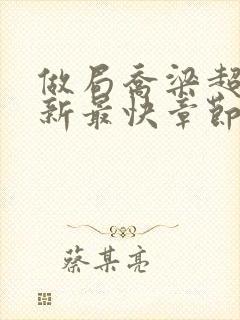 做局乔梁超
新最快章節
蔡某亮